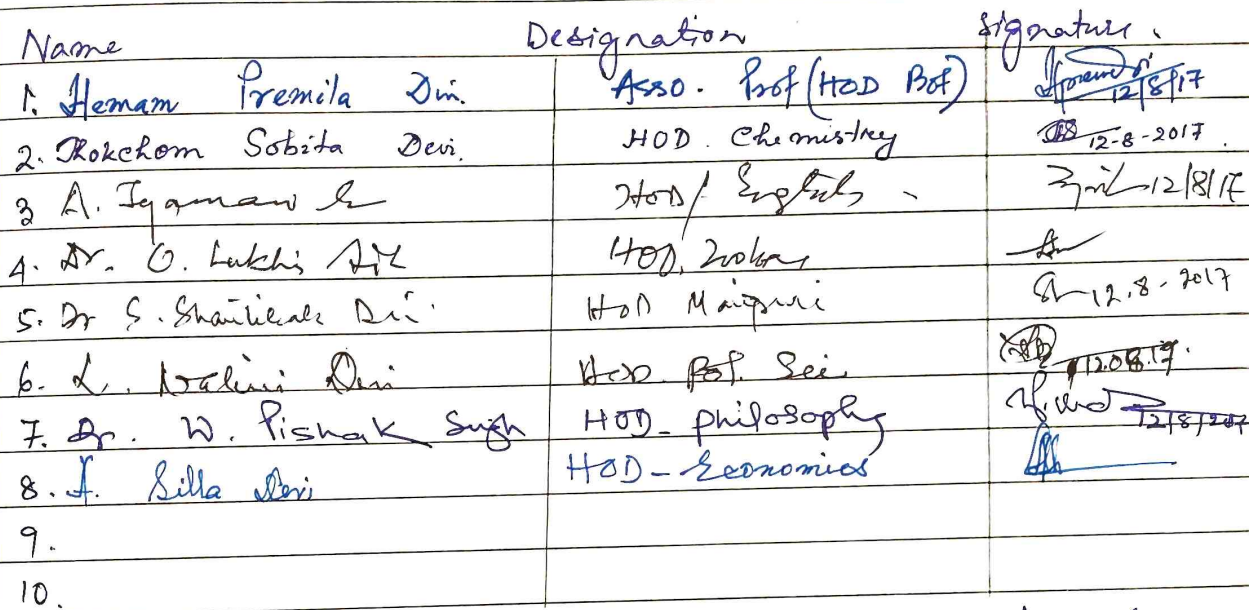 Name Designation Signature.
1. Hemam Premila Devi. Asso. Prof (HOD Bot) 12/8/17
2. Thokchom Sobita Devi. HOD. Chemistry 12-8-2017.
3 A. HOD/ English 12/8/17
4. Dr. O. Lukhi HOD,
5. Dr S. Devi. HOD Manipuri 12.8-2017
6. L. Nalini Devi HOD. Pol. Sci. 12.08.17.
7. Dr. W. Pishak Singh HOD- philosophy 12/8/2017
8. Silla Devi HOD- Economics
9.
10.